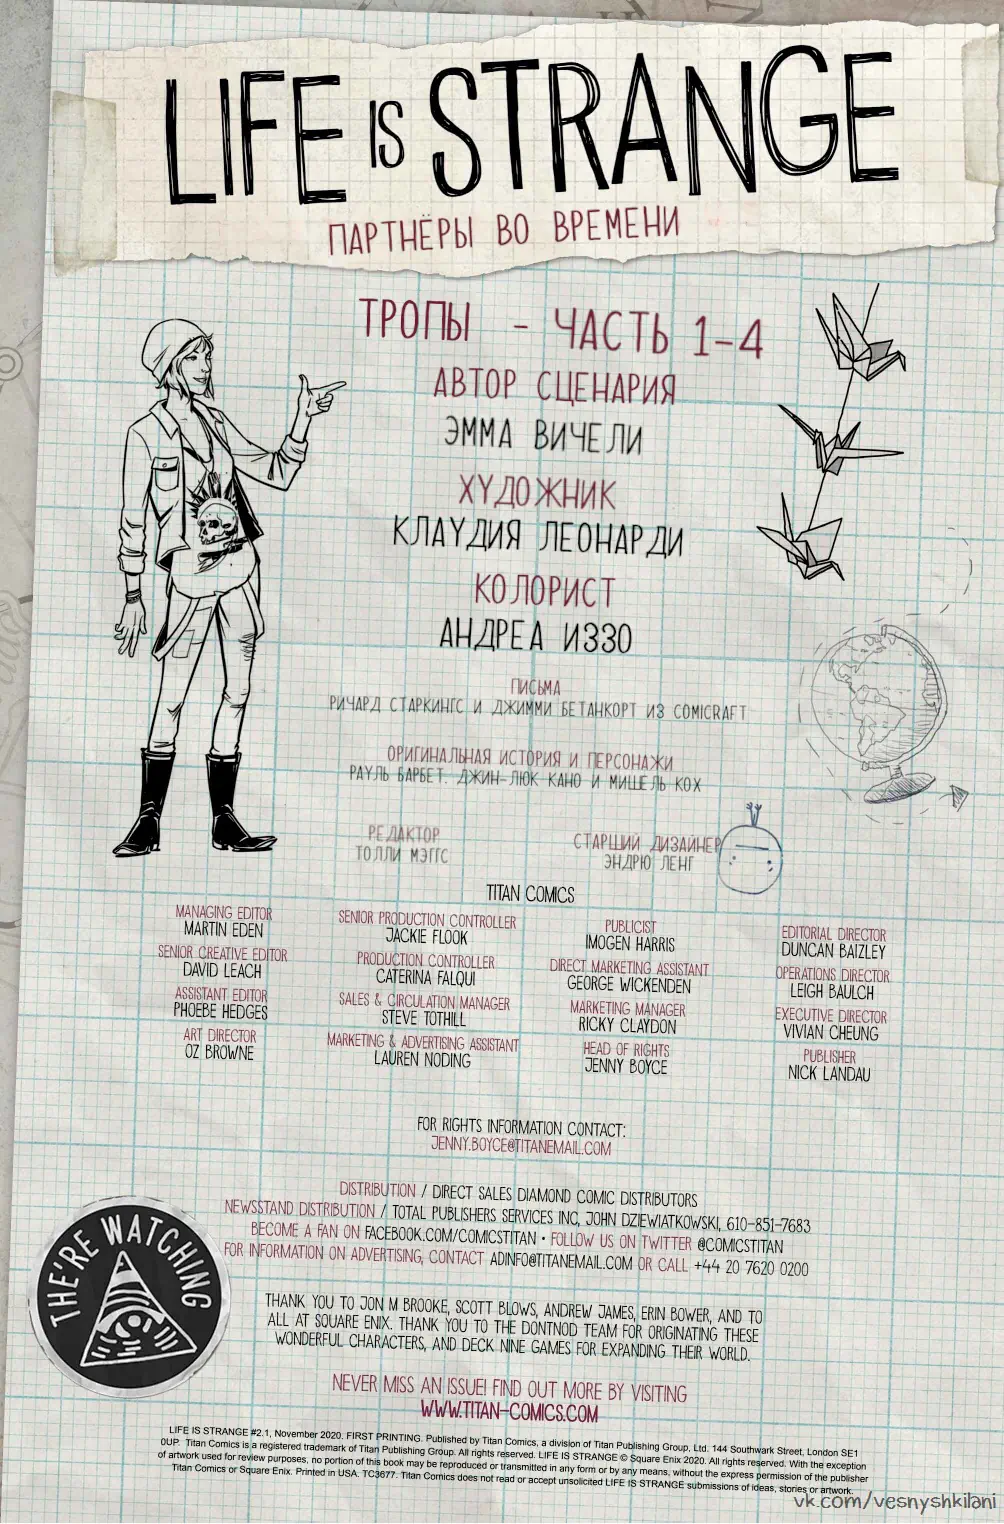 LIFE IS STRANGE
ПАРТНЁРЫ ВО ВРЕМЕНИ
ТРОПЫ - ЧАСТЬ 1-4
АВТОР СЦЕНАРИЯ
ЭММА ВИЧЕЛИ
ХУДОЖНИК
КЛАУДИЯ ЛЕОНАРДИ
КОЛОРИСТ
АНДРЕА ИЗЗО
ПИСЬМА
РИЧАРД СТАРКИНГС И ДЖИММИ БЕТАНКОРТ ИЗ COMICRAFT
ОРИГИНАЛЬНАЯ ИСТОРИЯ И ПЕРСОНАЖИ
РАУЛЬ БАРБЕТ, ДЖИН-ЛЮК КАНО И МИШЕЛЬ КОХ
РЕДАКТОР
ТОЛЛИ МЭГГС
СТАРШИЙ ДИЗАЙНЕР
ЭНДРЮ ЛЕНГ
TITAN COMICS
MANAGING EDITOR
MARTIN EDEN
SENIOR CREATIVE EDITOR
DAVID LEACH
ASSISTANT EDITOR
PHOEBE HEDGES
ART DIRECTOR
OZ BROWNE
SENIOR PRODUCTION CONTROLLER
JACKIE FLOOK
PRODUCTION CONTROLLER
CATERINA FALQUI
SALES & CIRCULATION MANAGER
STEVE TOTHILL
MARKETING & ADVERTISING ASSISTANT
LAUREN NODING
PUBLICIST
IMOGEN HARRIS
DIRECT MARKETING ASSISTANT
GEORGE WICKENDEN
MARKETING MANAGER
RICKY CLAYDON
HEAD OF RIGHTS
JENNY BOYCE
EDITORIAL DIRECTOR
DUNCAN BAIZLEY
OPERATIONS DIRECTOR
LEIGH BAULCH
EXECUTIVE DIRECTOR
VIVIAN CHEUNG
PUBLISHER
NICK LANDAU
FOR RIGHTS INFORMATION CONTACT:
JENNY.BOYCE@TITANEMAIL.COM
DISTRIBUTION / DIRECT SALES DIAMOND COMIC DISTRIBUTORS
NEWSSTAND DISTRIBUTION / TOTAL PUBLISHERS SERVICES INC, JOHN DZIEWIATKOWSKI, 610-851-7683
BECOME A FAN ON FACEBOOK.COM/COMICSTITAN • FOLLOW US ON TWITTER @COMICSTITAN
FOR INFORMATION ON ADVERTISING, CONTACT ADINFO@TITANEMAIL.COM OR CALL +44 20 7620 0200
THE'RE WATCHING
THANK YOU TO JON M BROOKE, SCOTT BLOWS, ANDREW JAMES, ERIN BOWER, AND TO
ALL AT SQUARE ENIX. THANK YOU TO THE DONTNOD TEAM FOR ORIGINATING THESE
WONDERFUL CHARACTERS, AND DECK NINE GAMES FOR EXPANDING THEIR WORLD.
NEVER MISS AN ISSUE! FIND OUT MORE BY VISITING
WWW.TITAN-COMICS.COM
LIFE IS STRANGE #2.1, November 2020. FIRST PRINTING. Published by Titan Comics, a division of Titan Publishing Group, Ltd. 144 Southwark Street, London SE1
0UP. Titan Comics is a registered trademark of Titan Publishing Group. All rights reserved. LIFE IS STRANGE © Square Enix 2020. All rights reserved. With the exception
of artwork used for review purposes, no portion of this book may be reproduced or transmitted in any form or by any means, without the express permission of the publisher
Titan Comics or Square Enix. Printed in USA. TC3677. Titan Comics does not read or accept unsolicited LIFE IS STRANGE submissions of ideas, stories or artwork.
vk.com/vesnyshkilani